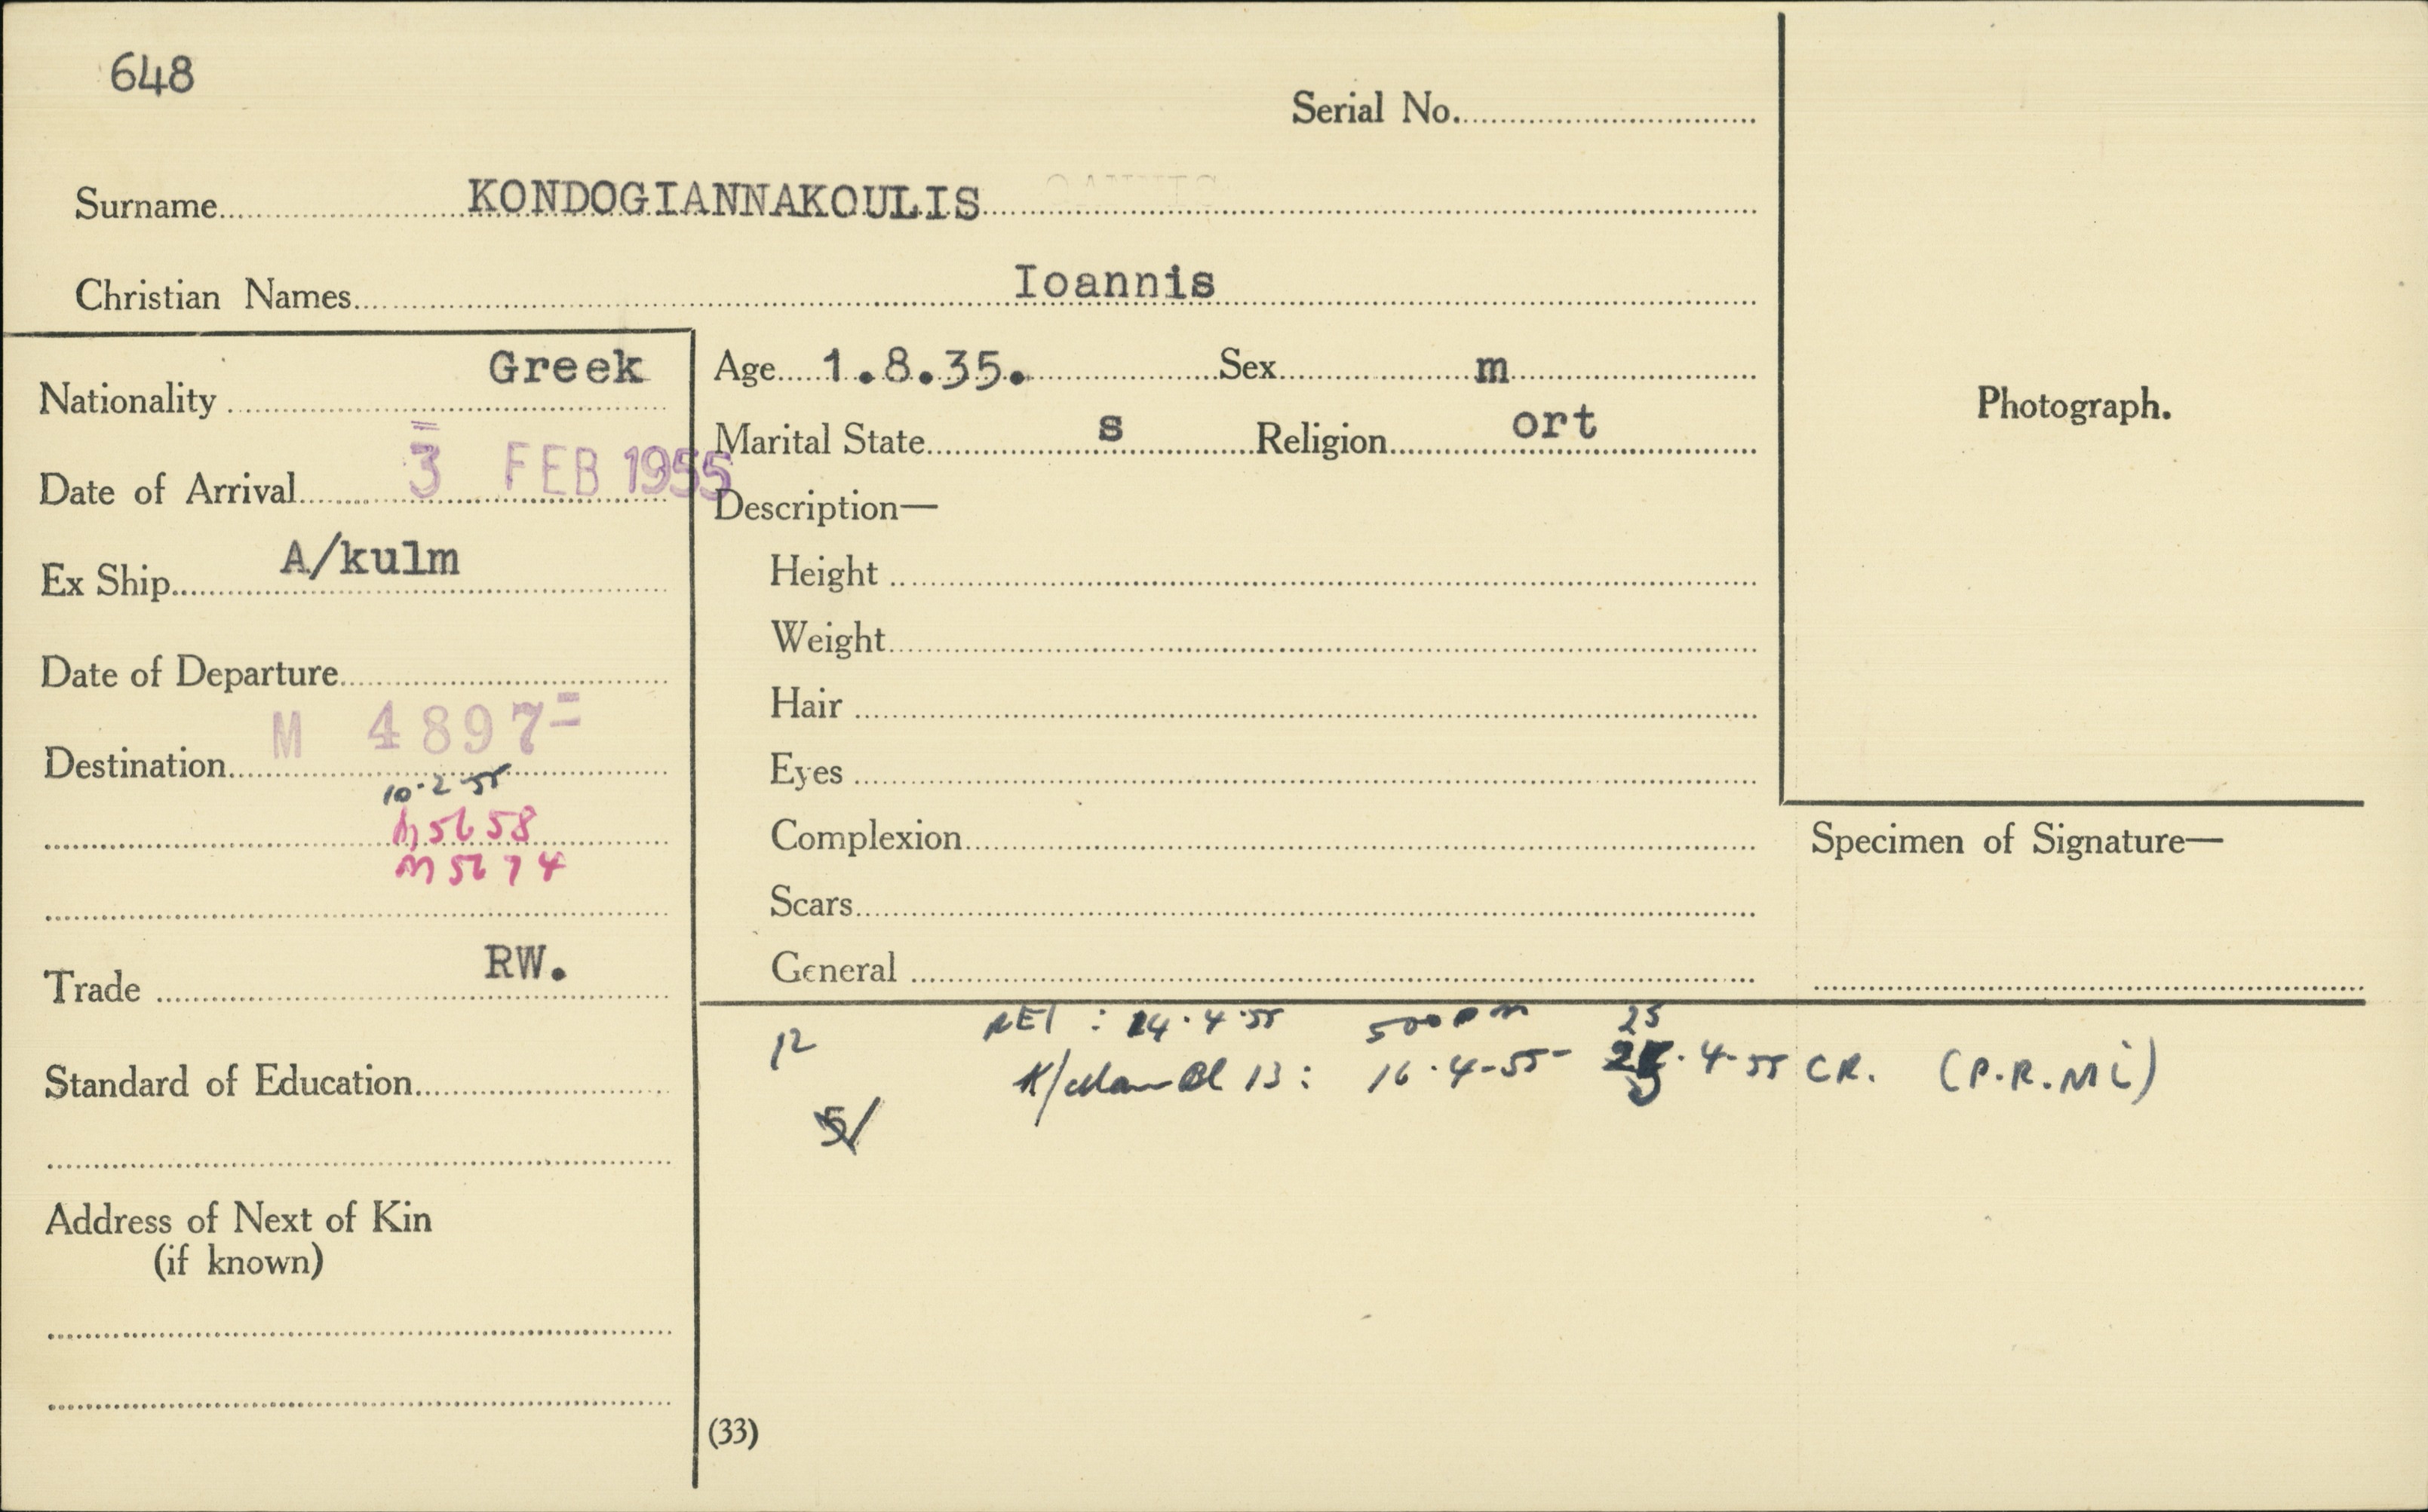 648
Serial No.
Surname KONDOGIANNAKOULIS
Christian Names Ioannis
Nationality Greek
Date of Arrival 3 FEB 1955
Ex Ship A/kulm
Date of Departure
Destination M 4897
10·2·55
M5658
M5674
Trade RW.
Standard of Education
Address of Next of Kin
(if known)
Age 1.8.35. Sex m
Marital State s Religion ort
Description—
Height
Weight
Hair
Eyes
Complexion
Scars
General
Photograph.
Specimen of Signature—
12 RET : 14·4·55 500 PM 25
Bl 13: 16·4-55- ·4-55 CR. (P.R.Mi)
5/
(33)